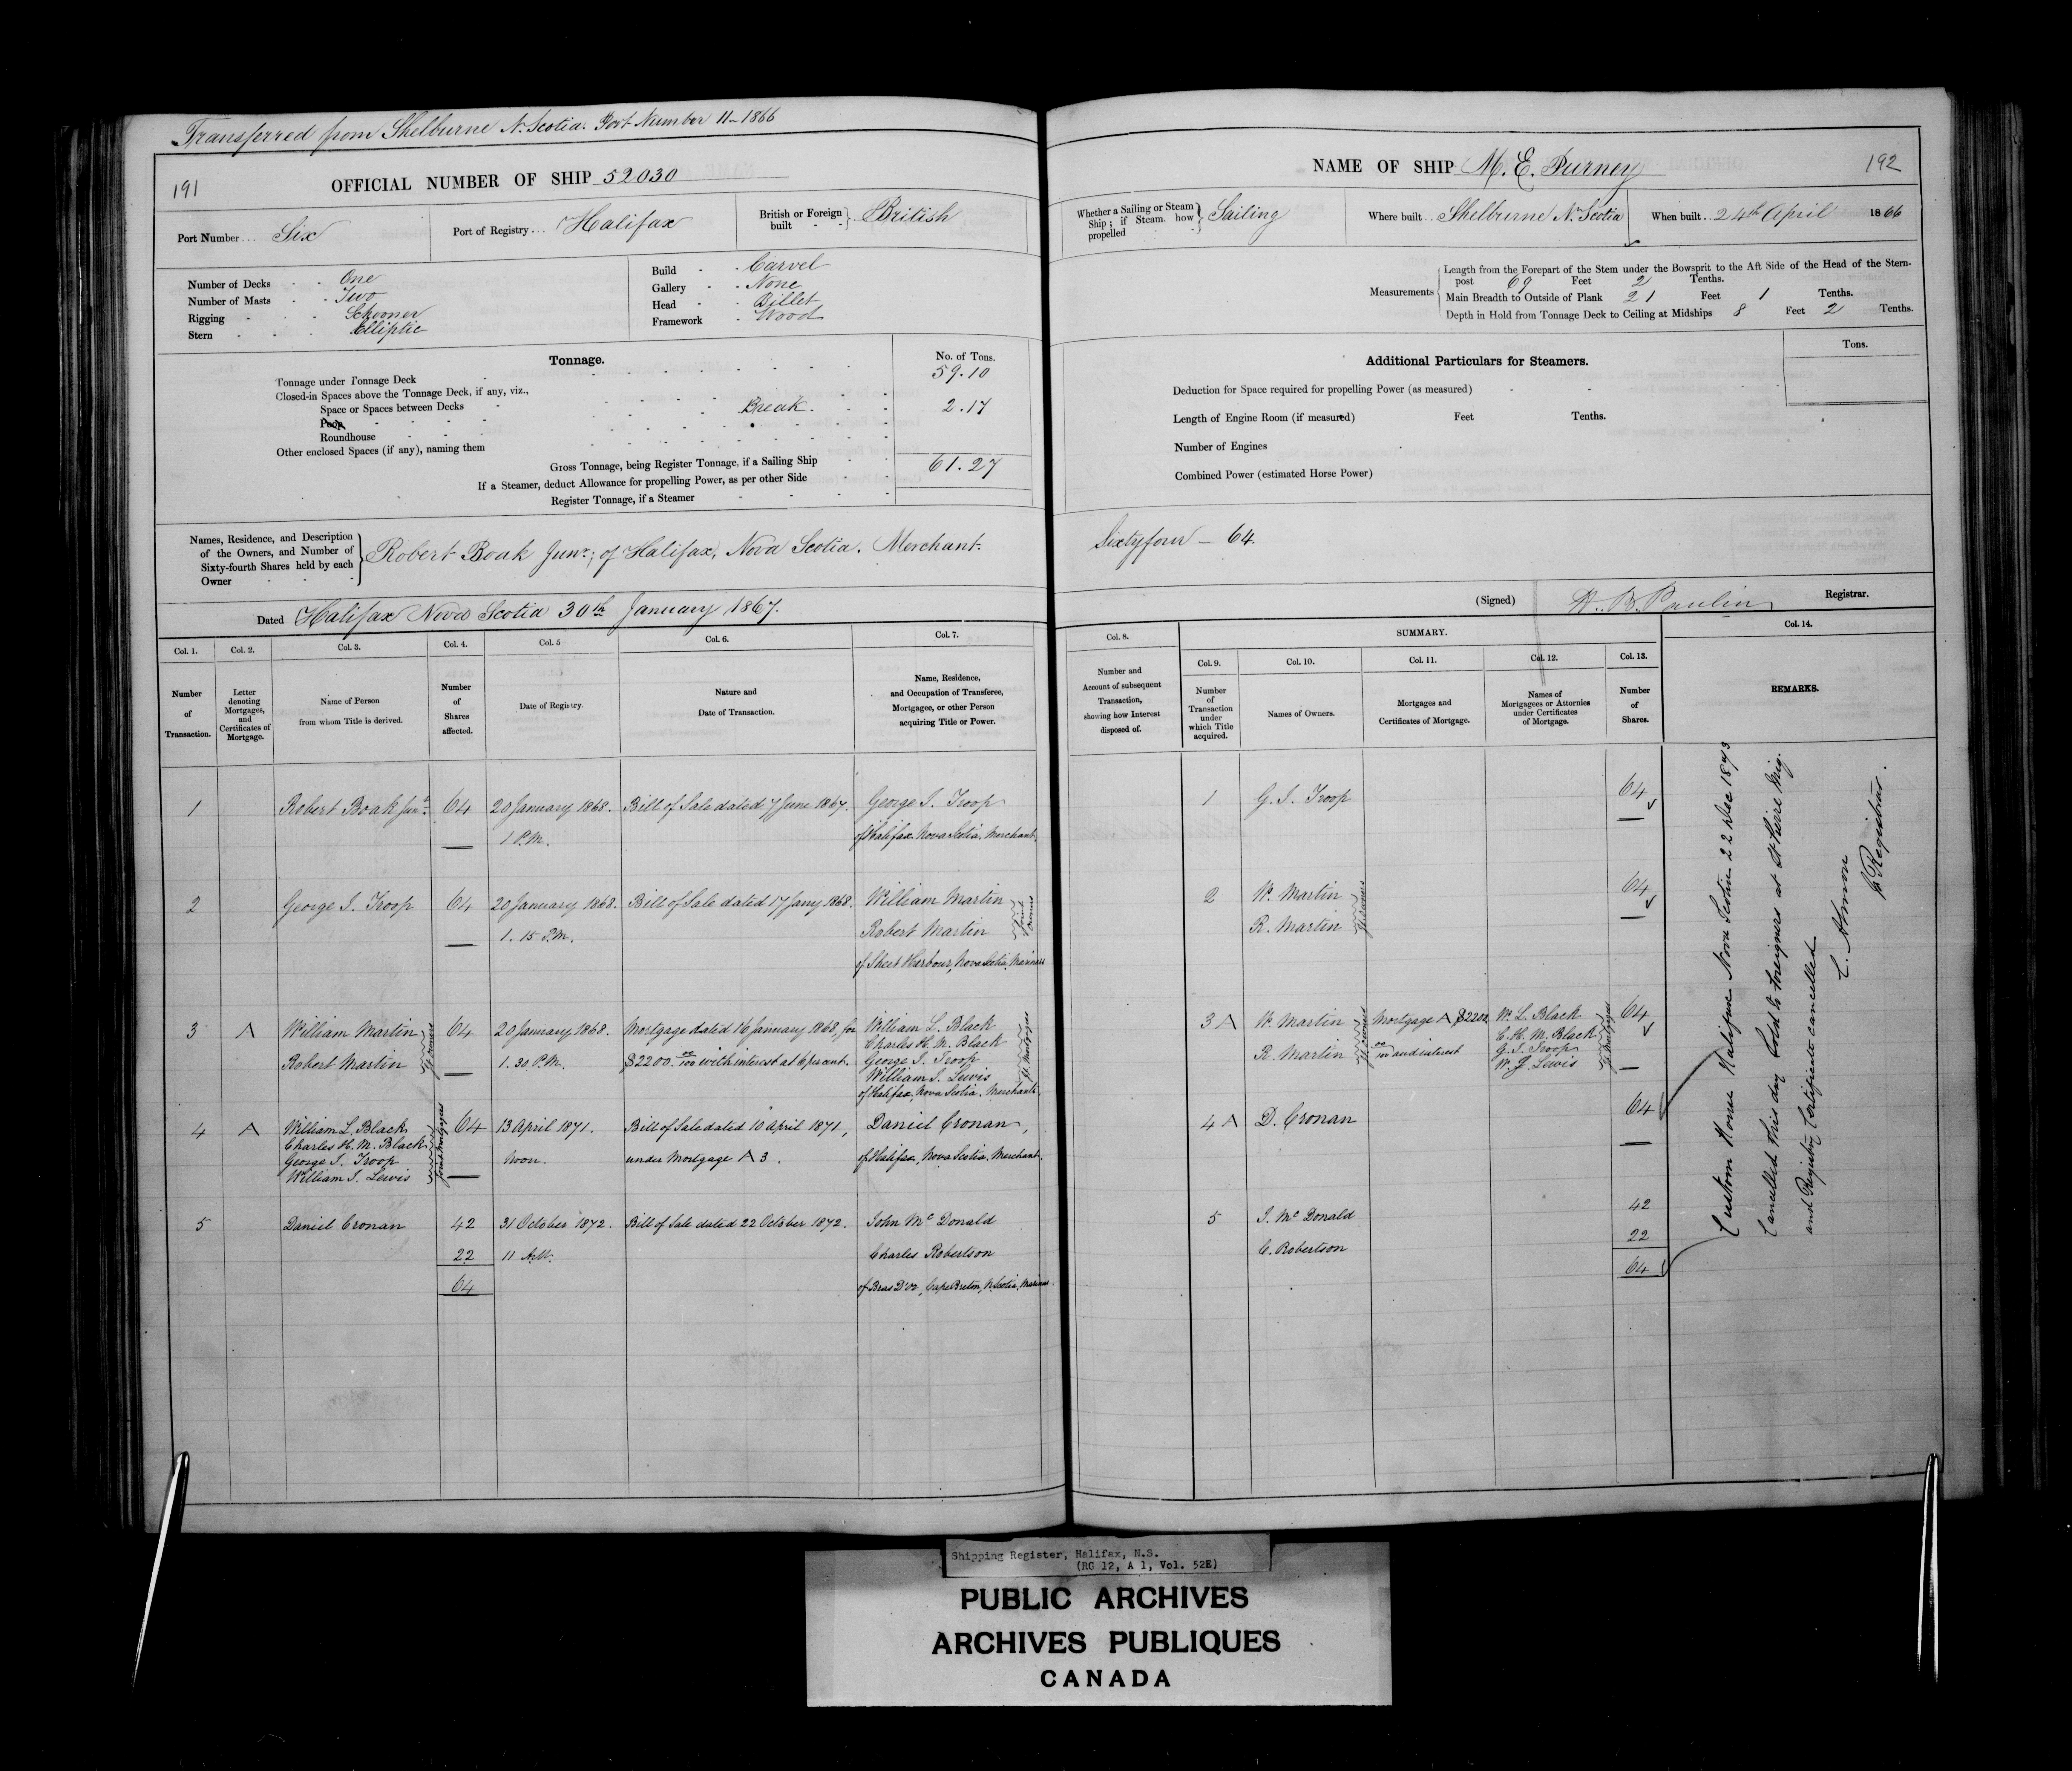 Transferred from Shelburne N. Scotia. Port Number 11-1866
191
OFFICIAL NUMBER OF SHIP 52030
Port Number... Six
Port of Registry... Halifax
British or Foreign built - - } British
Number of Decks - - One
Number of Masts - - Two
Rigging - - - Schooner
Stern - - - Elliptic
Build - - Carvel
Gallery - - None
Head - - Billet
Framework - Wood
Tonnage.
No. of Tons.
Tonnage under Tonnage Deck 59.10
Closed-in Spaces above the Tonnage Deck, if any, viz.,
Space or Spaces between Decks Break. 2.17
Poop
Roundhouse
Other enclosed Spaces (if any), naming them
Gross Tonnage, being Register Tonnage, if a Sailing Ship 61.27
If a Steamer, deduct Allowance for propelling Power, as per other Side
Register Tonnage, if a Steamer
Names, Residence, and Description
of the Owners, and Number of
Sixty-fourth Shares held by each
Owner
Robert Boak Junr; of Halifax, Nova Scotia. Merchant.
Dated Halifax Nova Scotia 30th January 1867.
Col. 1. Col. 2. Col. 3. Col. 4. Col. 5 Col. 6. Col. 7.
Number of Transaction.
Letter denoting Mortgages, and Certificates of Mortgage.
Name of Person from whom Title is derived.
Number of Shares affected.
Date of Registry.
Nature and Date of Transaction.
Name, Residence, and Occupation of Transferee, Mortgagee, or other Person acquiring Title or Power.
1 Robert Boak Junr 64 20 January 1868. Bill of Sale dated 7 June 1867. George J. Troop
1 P.M. of Halifax Nova Scotia Merchant.
2 George J. Troop 64 20 January 1868. Bill of Sale dated 17 Jany 1868. William Martin
1. 15 P.M. Robert Martin
Joint owners
of Sheet Harbour, Nova Scotia, Mariners
3 A William Martin 64 20 January 1868. Mortgage dated 16 January 1868 for William L. Black
Charles H. M. Black
Robert Martin 1. 30 P.M. $2200. 00/100 with interest at 6 per cent. George J. Troop
Jt owners
William J. Lewis
Jt Mortgagees
of Halifax, Nova Scotia. Merchants.
4 A William L. Black 64 13 April 1871. Bill of Sale dated 10 April 1871, Daniel Cronan,
Charles H. M. Black
George J. Troop Noon. under Mortgage A 3. of Halifax, Nova Scotia. Merchant.
William J. Lewis
Joint Mortgagees
5 Daniel Cronan 42 31 October 1872. Bill of Sale dated 22 October 1872. John McDonald
22 11 A.M. Charles Robertson
64 of Bras D'or, Cape Breton, N. Scotia, Mariners.
NAME OF SHIP M. E. Purney
192
Whether a Sailing or Steam Ship; if Steam how propelled } Sailing
Where built.. Shelburne N. Scotia
When built.. 24th April 1866
Measurements
Length from the Forepart of the Stem under the Bowsprit to the Aft Side of the Head of the Stern-
post 69 Feet 2 Tenths.
Main Breadth to Outside of Plank 21 Feet 1 Tenths.
Depth in Hold from Tonnage Deck to Ceiling at Midships 8 Feet 2 Tenths.
Additional Particulars for Steamers.
Tons.
Deduction for Space required for propelling Power (as measured)
Length of Engine Room (if measured) Feet Tenths.
Number of Engines
Combined Power (estimated Horse Power)
Sixtyfour - 64
(Signed) H. B. Paulin Registrar.
Col. 8. SUMMARY. Col. 14.
Col. 9. Col. 10. Col. 11. Col. 12. Col. 13.
Number and Account of subsequent Transaction, showing how Interest disposed of.
Number of Transaction under which Title acquired.
Names of Owners.
Mortgages and Certificates of Mortgage.
Names of Mortgagees or Attornies under Certificates of Mortgage.
Number of Shares.
REMARKS.
1 G. J. Troop 64
2 W. Martin 64
R. Martin
Jt owners
3 A W. Martin Mortgage A $2200 W. L. Black 64
C. H. M. Black
R. Martin 00/100 and interest G. J. Troop
Jt owners
W. J. Lewis
Jt Mortgagees
4 A D. Cronan 64
5 J. McDonald 42
C. Robertson 22
64
Custom House Halifax Nova Scotia 22 Dec 1873
Cancelled this day Sold to foreigners at St Pierre Miq.
and Registry Certificate cancelled
C. Almon
Registrar.
Shipping Register, Halifax, N.S.
(RG 12, A 1, Vol. 52E)
PUBLIC ARCHIVES
ARCHIVES PUBLIQUES
CANADA